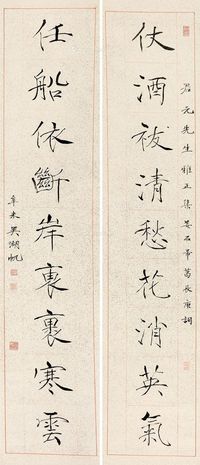 仗酒祓清愁花消英氣
君元先生雅正集姜石帚葛長庚詞
任船依斷岸裏裹寒雲
辛未吳湖帆